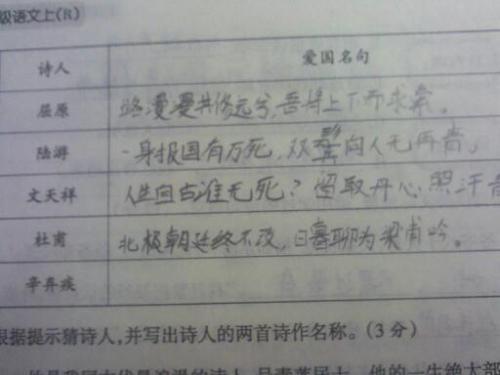 级语文上(R)
诗人 爱国名句
屈原 路漫漫其修远兮,吾将上下而求索。
陆游 一身报国有万死,双鬓向人无再青。
文天祥 人生自古谁无死?留取丹心照汗青
杜甫 北极朝廷终不改,日暮聊为梁甫吟。
辛弃疾
根据提示猜诗人,并写出诗人的两首诗作名称。(3分)